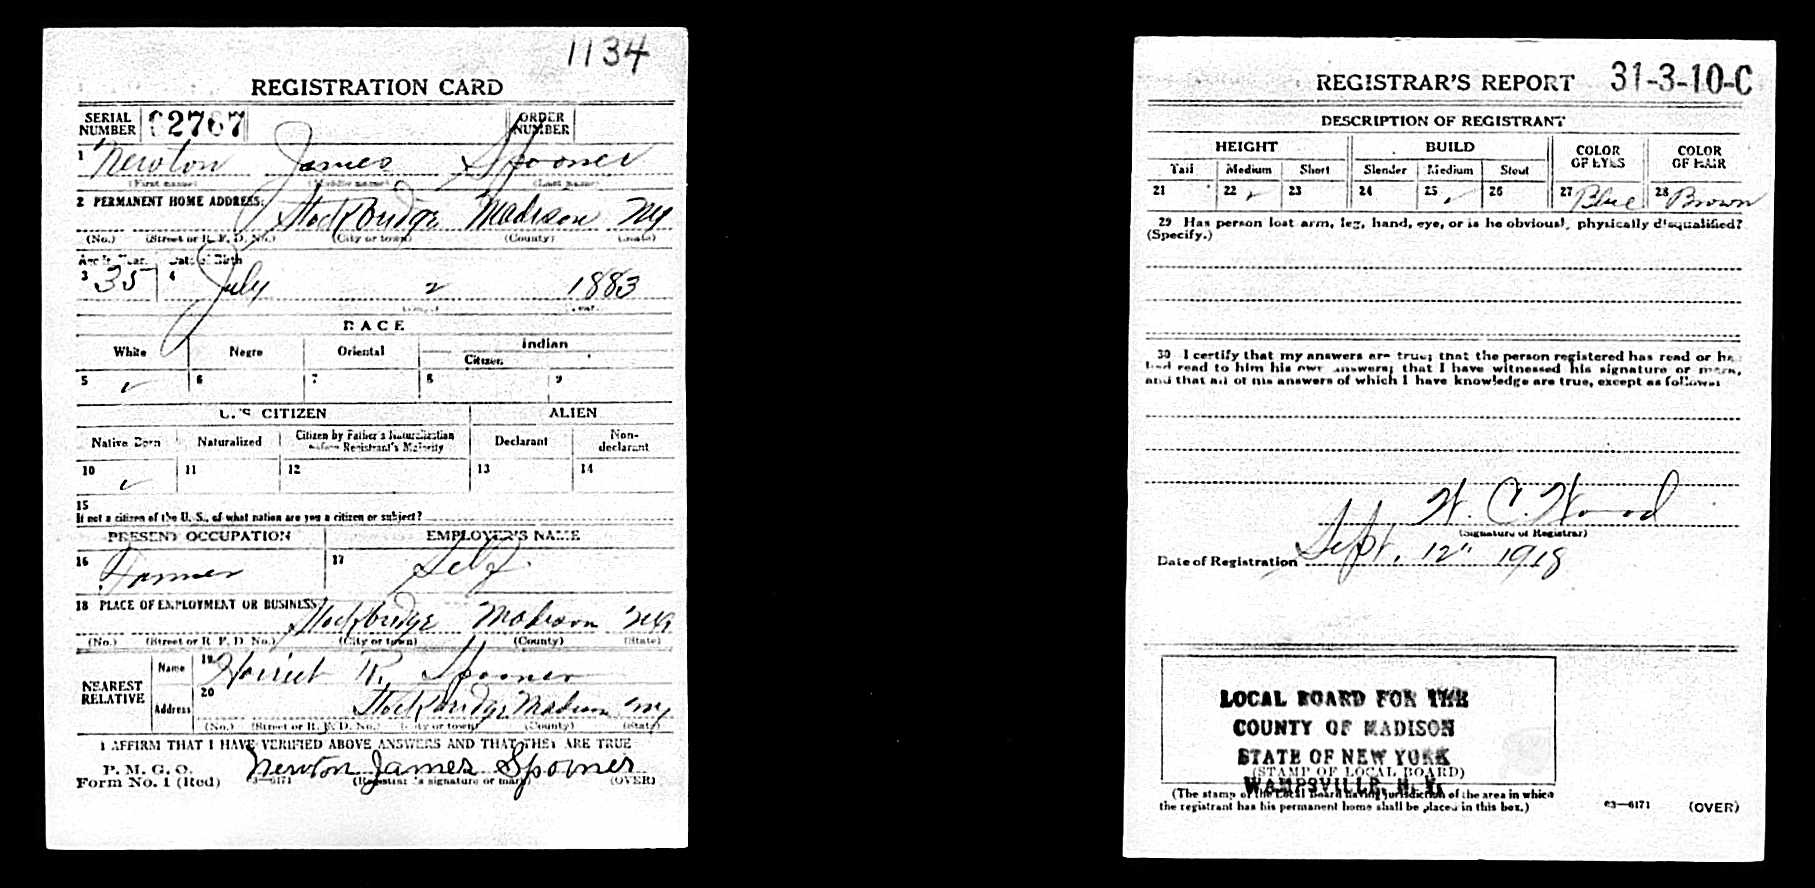 1134
REGISTRATION CARD
SERIAL NUMBER 2767 ORDER NUMBER
1 Newton James Spooner
(First name) (Middle name) (Last name)
2 PERMANENT HOME ADDRESS: Stockbridge Madison NY
(No.) (Street or R. F. D. No.) (City or town) (County) (State)
Age in Years Date of Birth
3 35 4 July 2 1883
RACE
White Negro Oriental Indian
Citizen
5 ✓ 6 7 8 9
U. S. CITIZEN ALIEN
Native Born Naturalized Citizen by Father's Naturalization before Registrant's Majority Declarant Non-declarant
10 ✓ 11 12 13 14
15
If not a citizen of the U. S., of what nation are you a citizen or subject?
PRESENT OCCUPATION EMPLOYER'S NAME
16 Farmer 17 Self
18 PLACE OF EMPLOYMENT OR BUSINESS: Stockbridge Madison NY
(No.) (Street or R. F. D. No.) (City or town) (County) (State)
NEAREST RELATIVE Name 19 Harriet R. Spooner
Address 20 Stockbridge Madison NY
(No.) (Street or R. F. D. No.) (City or town) (County) (State)
I AFFIRM THAT I HAVE VERIFIED ABOVE ANSWERS AND THAT THEY ARE TRUE
P. M. G. O.
Form No. 1 (Red) 03—6171 Newton James Spooner (Registrant's signature or mark) (OVER)
REGISTRAR'S REPORT 31-3-10-C
DESCRIPTION OF REGISTRANT
HEIGHT BUILD COLOR OF EYES COLOR OF HAIR
Tall Medium Short Slender Medium Stout
21 22 ✓ 23 24 25 ✓ 26 27 Blue 28 Brown
29 Has person lost arm, leg, hand, eye, or is he obviously physically disqualified?
(Specify.)
30 I certify that my answers are true; that the person registered has read or has
had read to him his own answers; that I have witnessed his signature or mark,
and that all of his answers of which I have knowledge are true, except as follows:
W. C. Wood
(Signature of Registrar)
Date of Registration Sept. 12" 1918
LOCAL BOARD FOR THE
COUNTY OF MADISON
STATE OF NEW YORK
(STAMP OF LOCAL BOARD)
WAMPSVILLE, N. Y.
(The stamp of the Local Board having jurisdiction of the area in which
the registrant has his permanent home shall be placed in this box.)
03—6171 (OVER)